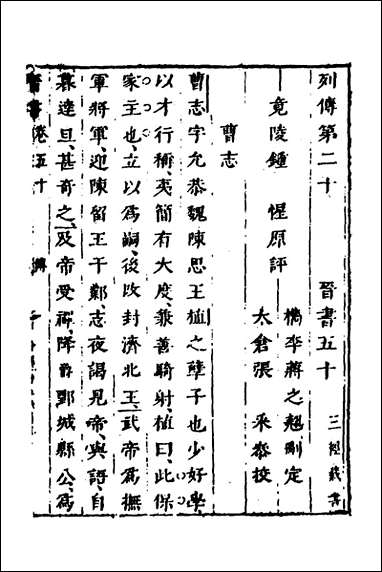 列傳第二十 晉書五十 三經藏書
竟陵鍾 惺原評 檇李蔣之翹刪定
太倉張 采叅挍
曹志
曹志字允恭魏陳思王植之孽子也少好學、
以才行稱、夷簡有大度、兼善騎射、植曰、此保
家主也、立以爲嗣、後改封濟北王、武帝爲撫
軍將軍、迎陳留王于鄴、志夜謁見帝、與語、自
暮達旦、甚奇之、及帝受禪、降爵鄄城縣公、爲
晉書 卷五十 傳